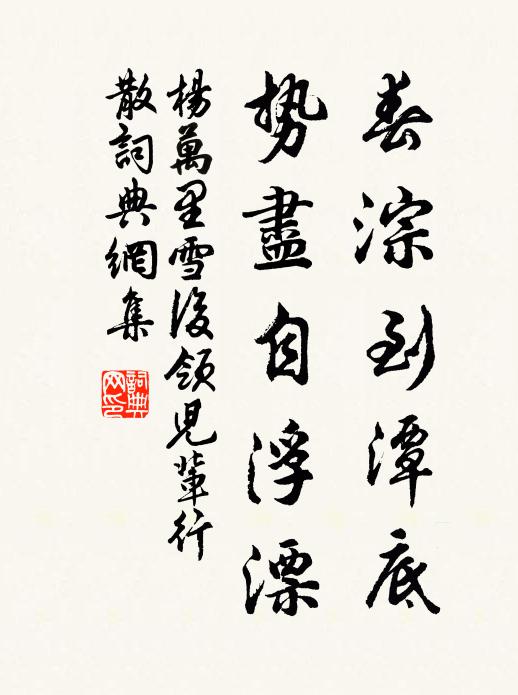 舂淙到潭底
勢盡自浮漂
楊萬里雪後領兒輩行
散詞典網集
詞典
网印